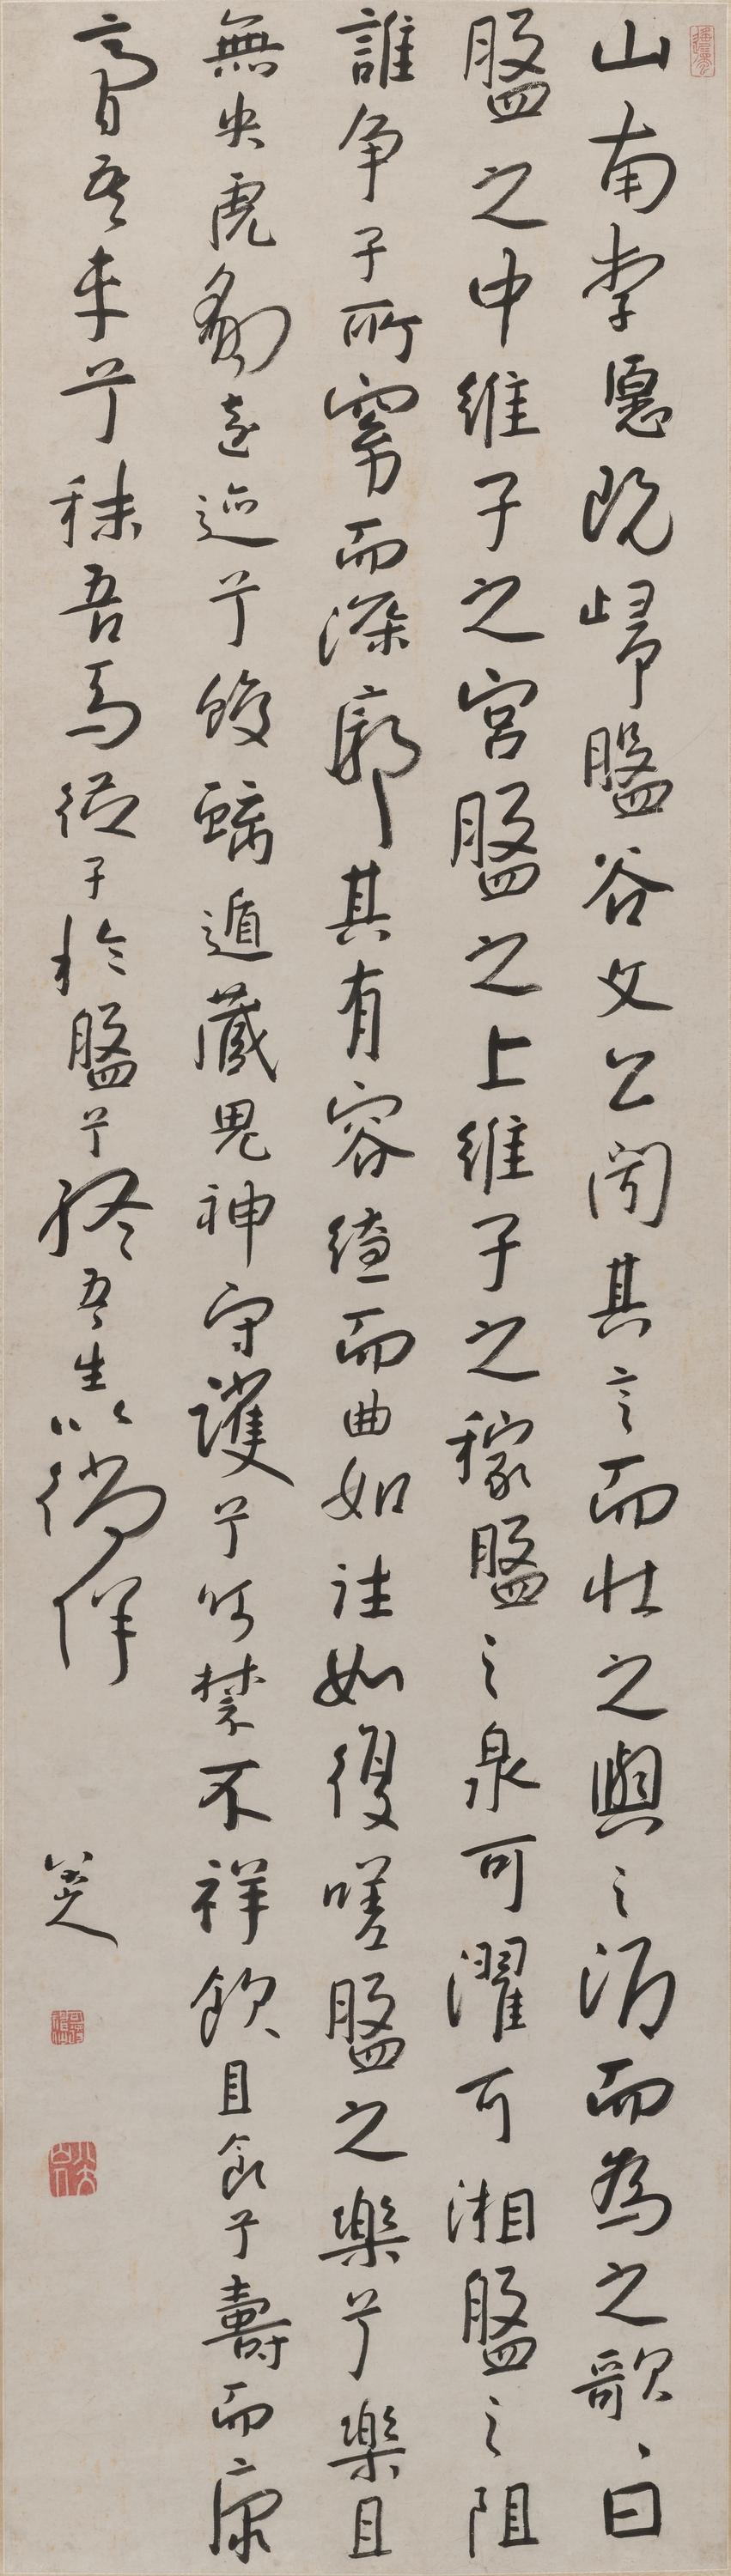 山南李愿既歸盤谷文公聞其言而壯之與之酒而為之歌、曰
盤之中維子之宮盤之上維子之稼盤之泉可濯可湘盤之阻
誰爭子所窈而深廓其有容繚而曲如往如復嗟盤之樂兮樂且
無央虎豹遠迹兮蛟螭遁藏鬼神守護兮呵禁不祥飲且食兮壽而康
膏吾車兮秣吾馬從子於盤兮終吾生以徜徉
八大山人